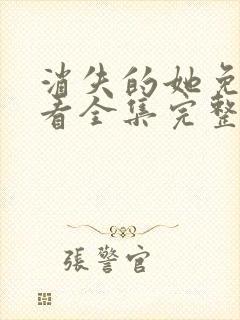 消失的她免
看全集完整
張警官